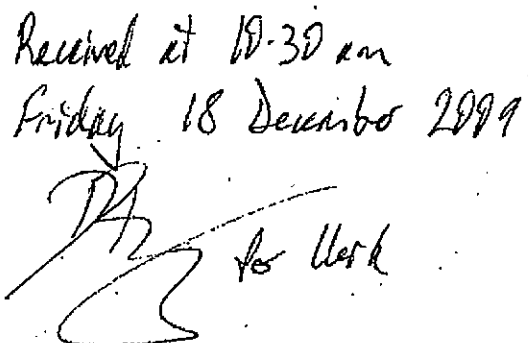 Received at 10.30 am
Friday 18 December 2009
for Clerk